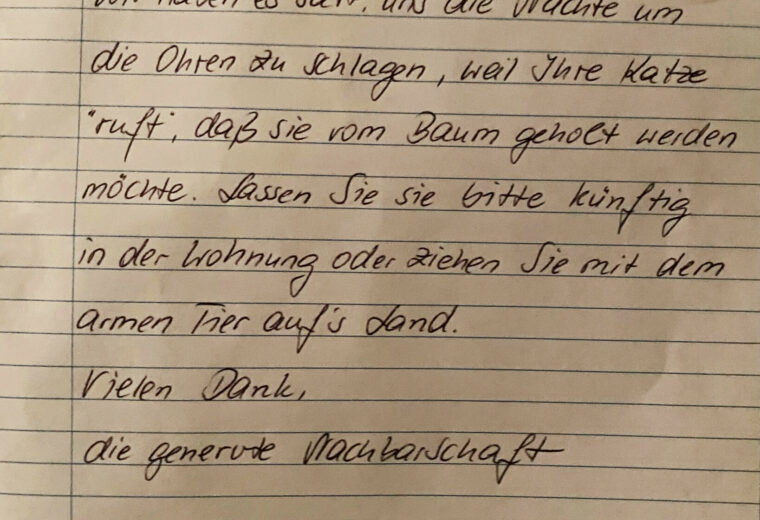 Wir haben es satt, uns die Nächte um
die Ohren zu schlagen, weil Ihre Katze
"ruft", daß sie vom Baum geholt werden
möchte. Lassen Sie sie bitte künftig
in der Wohnung oder ziehen Sie mit dem
armen Tier auf's Land.
Vielen Dank,
die genervte Nachbarschaft